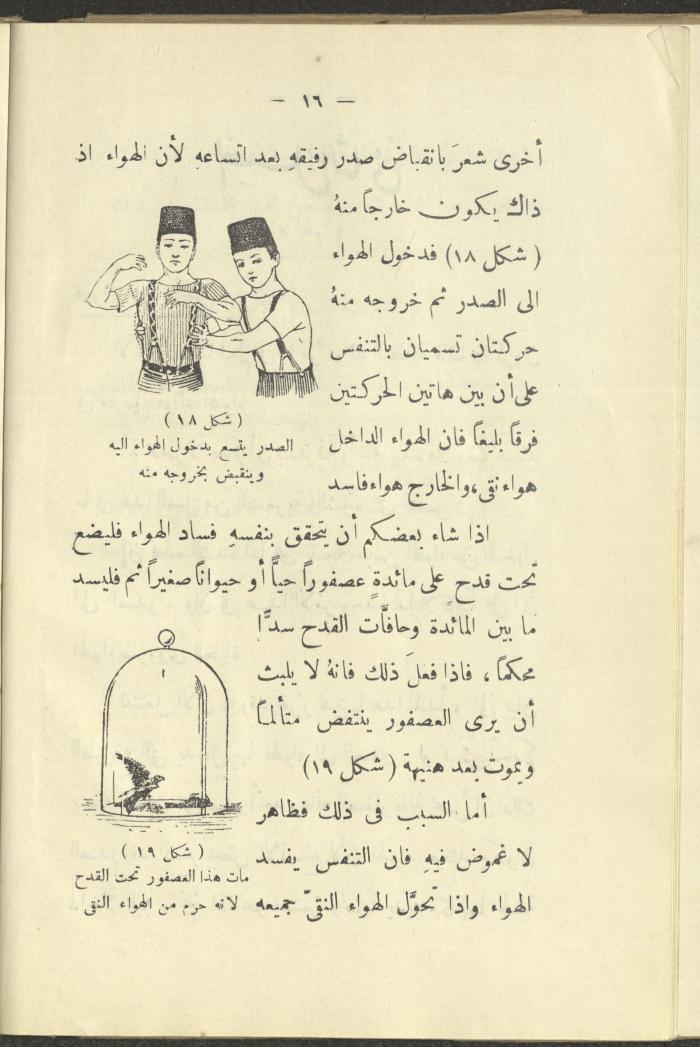 — ١٦ —
أخرى شعرَ بانقباض صدر رفيقهِ بعد اتساعهِ لأن الهواء اذ
ذاك يكون خارجاً منهُ
( شكل ١٨ ) فدخول الهواء
الى الصدر ثم خروجه منهُ
حركتان تسميان بالتنفس
على أن بين هاتين الحركتين
فرقاً بليغاً فان الهواء الداخل
هواء نقى، والخارج هواء فاسد
( شكل ١٨ )
الصدر يتسع بدخول الهواء اليه
وينقبض بخروجه منه
اذا شاء بعضكم أن يتحقق بنفسهِ فساد الهواء فليضع
تحت قدح على مائدةٍ عصفوراً حياًّ أو حيواناً صغيراً ثم فليسد
ما بين المائدة وحافاَّت القدح سدًّا
محكماً ، فاذا فعلَ ذلك فانهُ لا يلبث
أن يرى العصفور ينتفض متألماً
ويموت بعد هنيهة ( شكل ١٩ )
أما السبب فى ذلك فظاهر
لا غموض فيهِ فان التنفس يفسد
الهواء واذا تحوَّل الهواء النقىّ جميعه
( شكل ١٩ )
مات هذا العصفور تحت القدح
لانه حرم من الهواء النقى